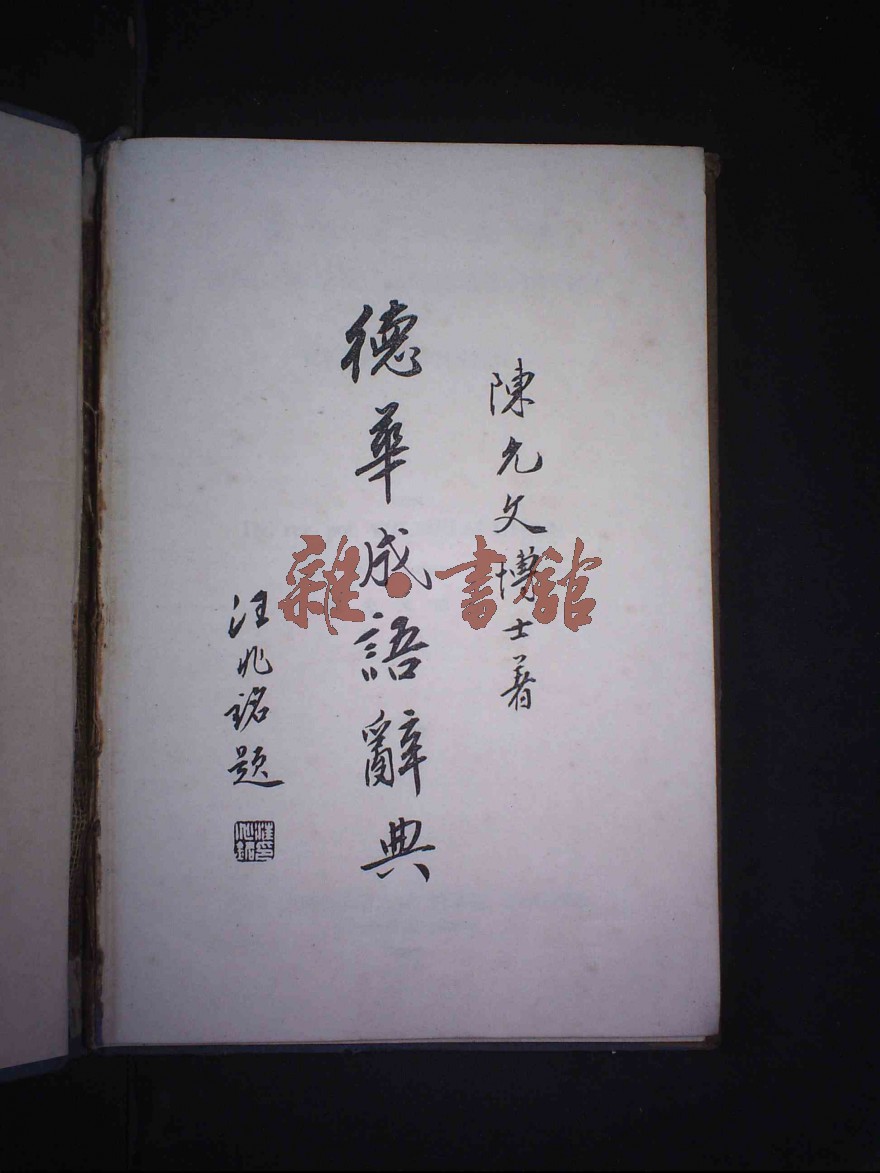 陳允文博士著
德華成語辭典
汪兆銘題
汪兆銘印
雜·書館